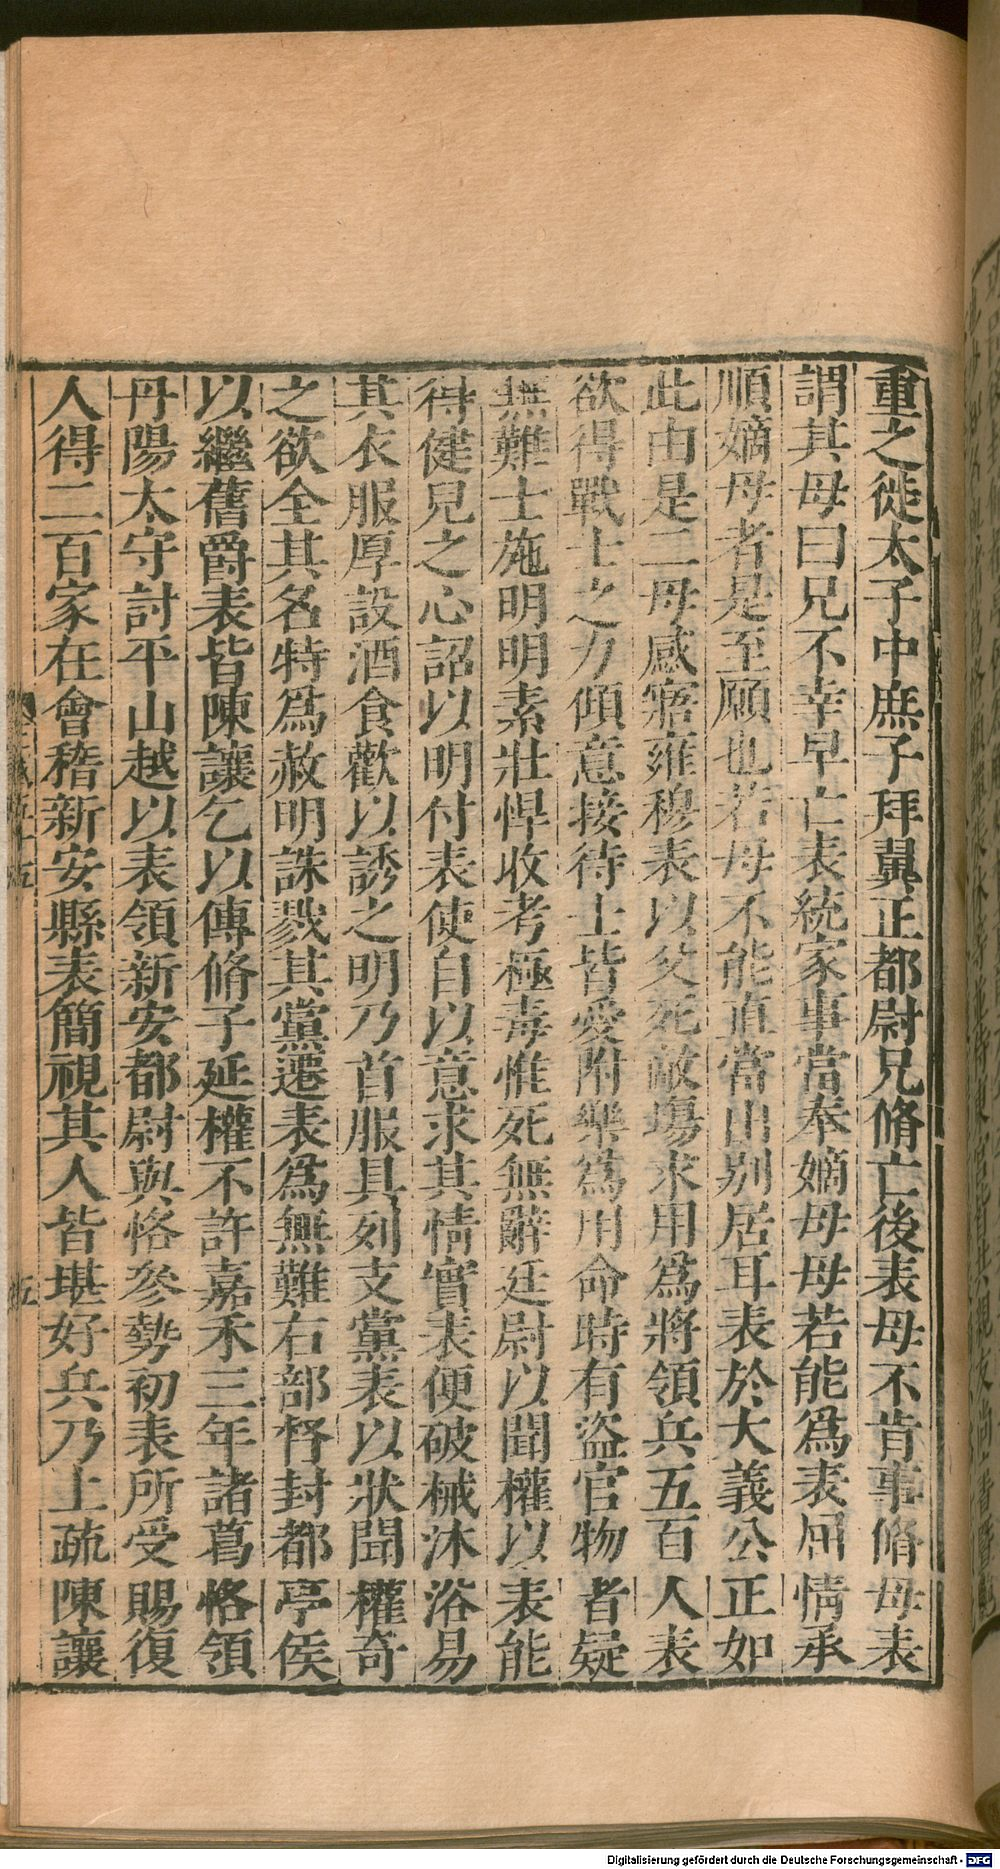 重之徙太子中庶子拜翼正都尉兄脩亡後表母不肯事脩母表
謂其母曰兄不幸早亡表統家事當奉嫡母母若能爲表屈情承
順嫡母者是至願也若母不能直當出别居耳表於大義公正如
此由是二母感寤雍穆表以父死敵塲求用爲將領兵五百人表
欲得戰士之力傾意接待士皆愛附樂爲用命時有盜官物者疑
無難士施明明素壯悍收考極毒惟死無辭廷尉以聞權以表能
得健兒之心詔以明付表使自以意求其情實表便破械沐浴易
其衣服厚設酒食歡以誘之明乃首服具列支黨表以狀聞權奇
之欲全其名特爲赦明誅戮其黨遷表爲無難右部督封都亭侯
以繼舊爵表皆陳讓乞以傳脩子延權不許嘉禾三年諸葛恪領
丹陽太守討平山越以表領新安都尉與恪參勢初表所受賜復
人得二百家在會稽新安縣表簡視其人皆堪好兵乃上疏陳讓
五
Digitalisierung gefördert durch die Deutsche Forschungsgemeinschaft - DFG